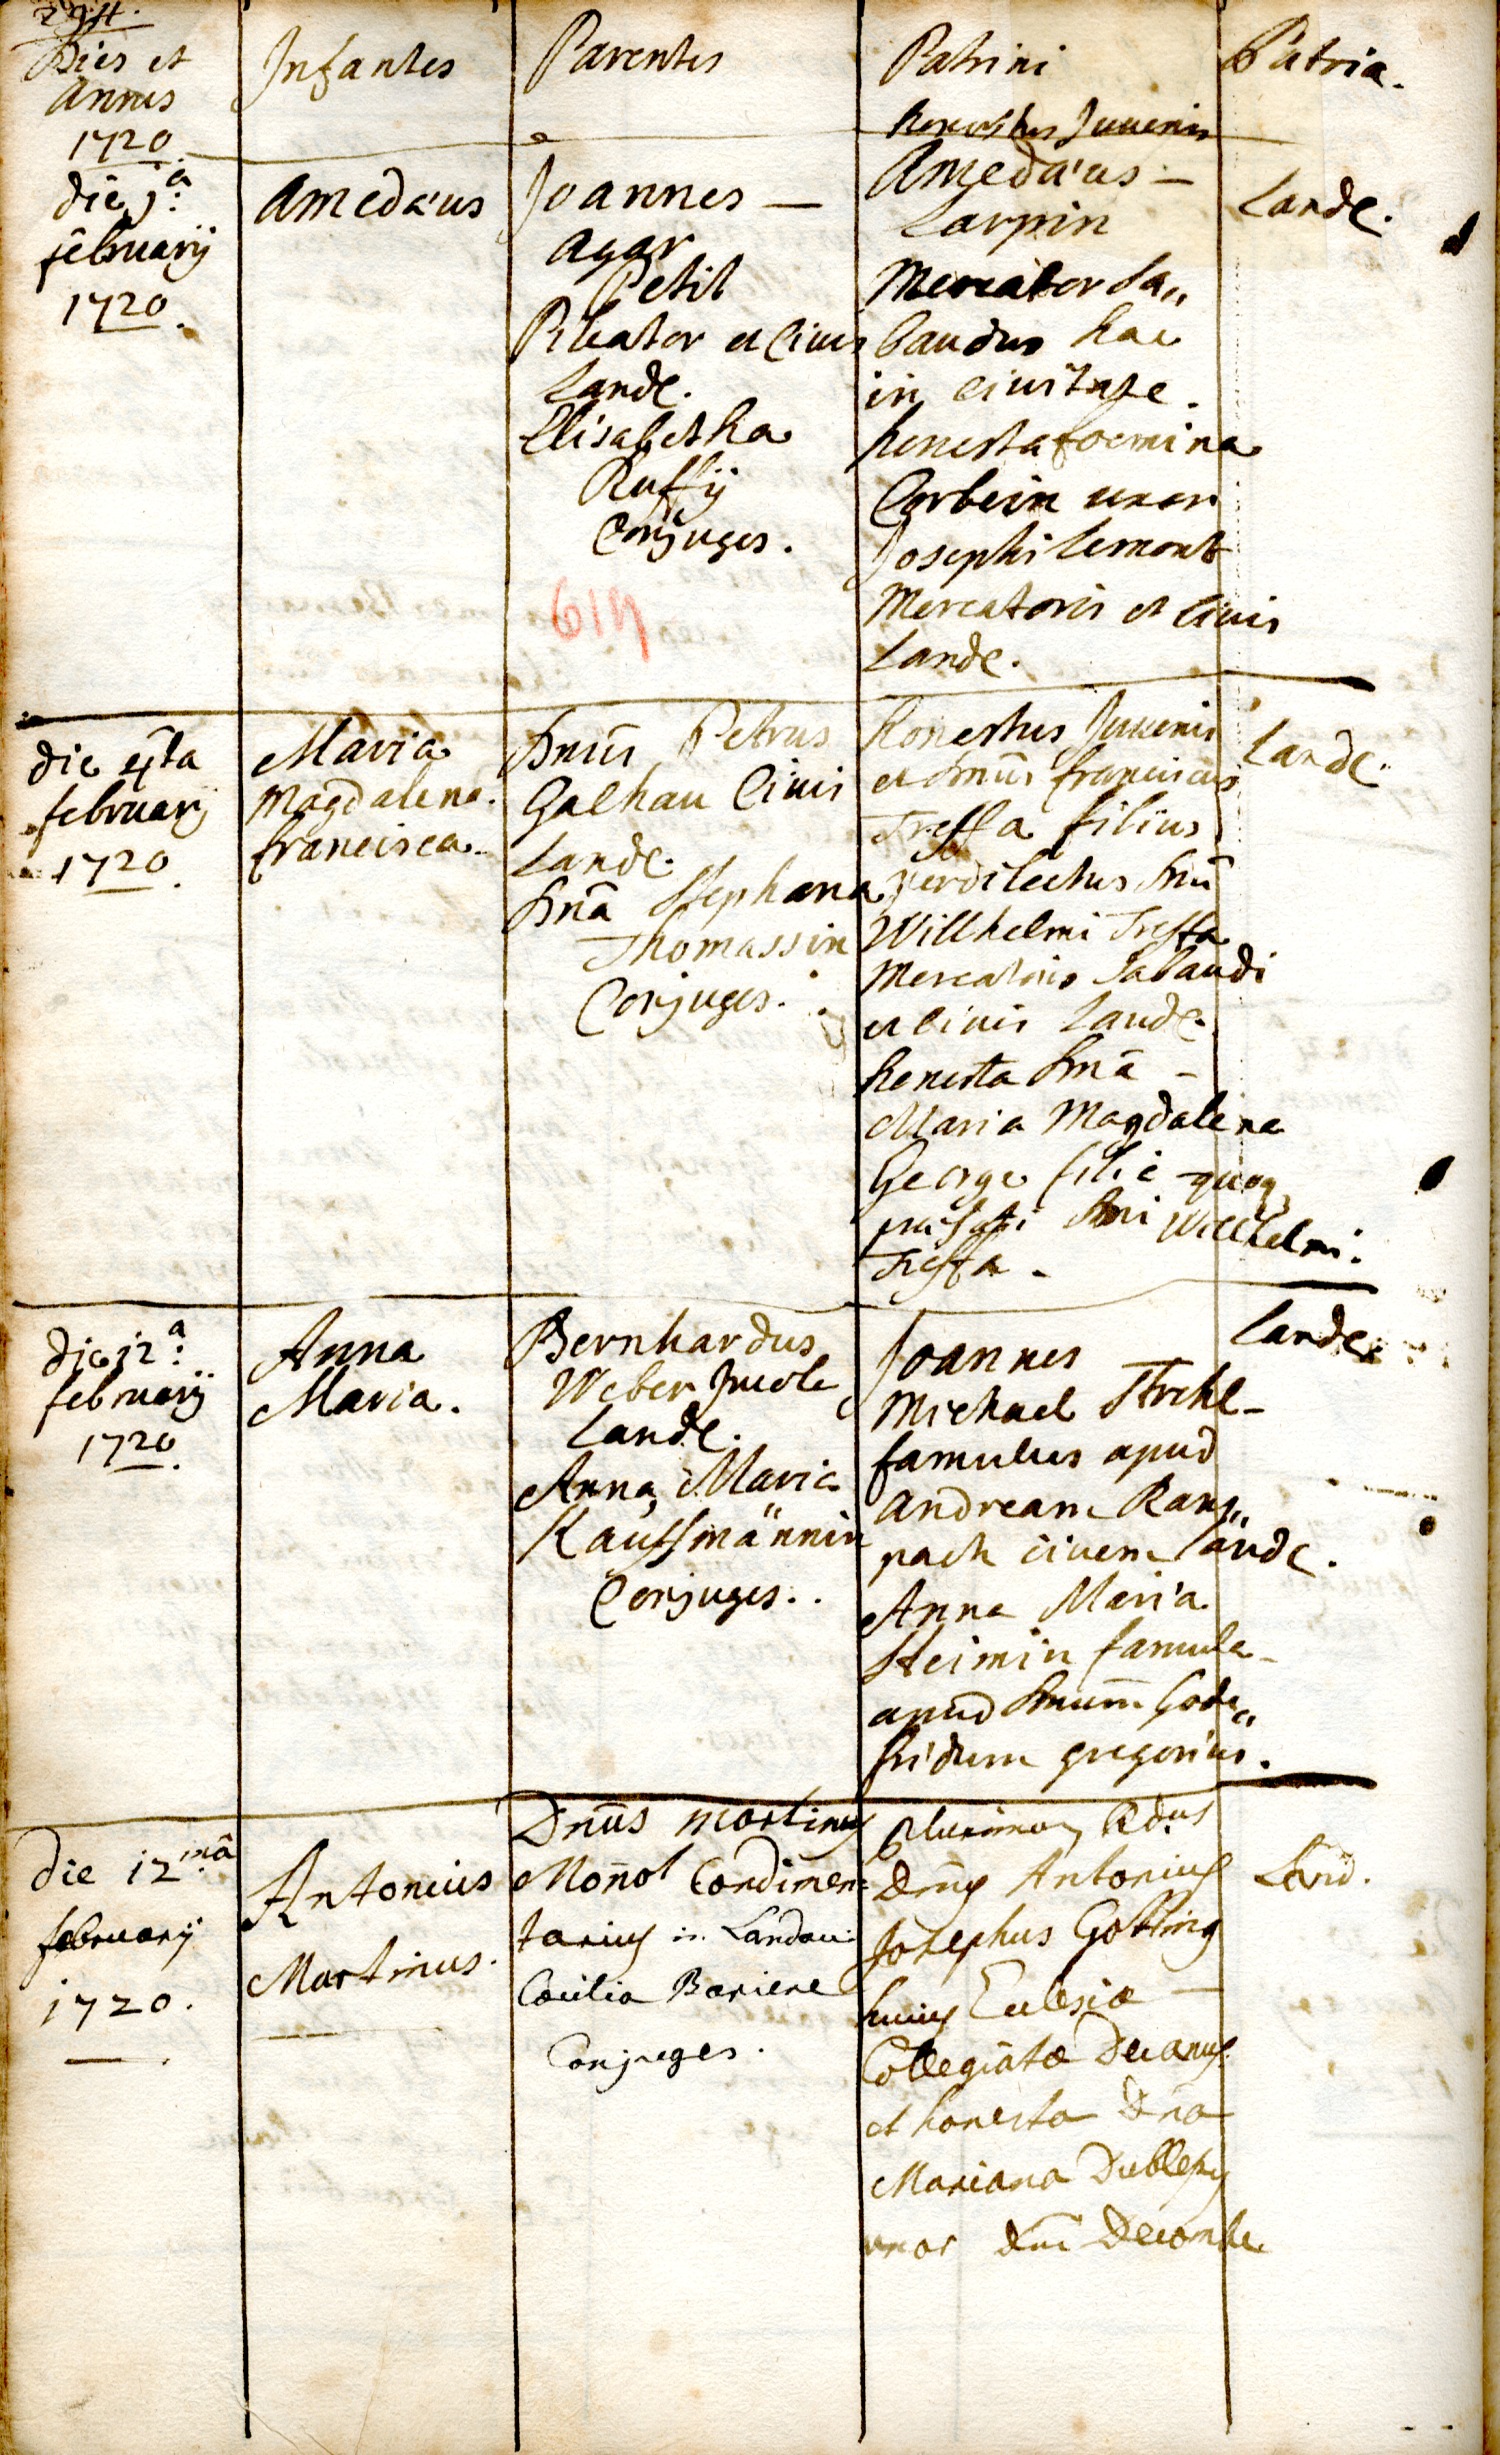 294.
Dies et
Annus
1720.
Infantes
Parentes
Patrini
Patria.
die 1a:
februarij
1720.
Amedæus
Joannes —
Agar
Petit
Pileator et Civis
Landæ.
Elisabetha
Ruffij
Conjuges.
619
honestus Juvenis
Amedæus —
Larpin
Mercator Sa„
baudus hac
in civitate.
honesta foemina
Corbein uxor
Josephi Lemont
Mercatoris et Civis
Landæ.
Landæ.
die 4ta
februarij
1720.
Maria
Magdalena
francisca.
Dnus Petrus
Galhau Civis
Landæ.
Dna Stephana
Thomassin
Conjuges.
honestus Juvenis
et Dnus franciscus
Treffa filius
perdilectus Dni
Willhelmi Treffa
Mercatoris Sabaudi
et Civis Landæ.
honesta Dna —
Maria Magdalena
George filia quoq
præfati Dni Willhelmi
Treffa.
Landæ.
die 12a:
februarij
1720.
Anna
Maria.
Bernhardus
Weber Incola
Landæ.
Anna Maria
Kauffmännin
Conjuges.
Joannes
Michael Strehl
famulus apud
Andream Rans„
pach civem Landæ.
Anna Maria
Steimin famula
apud Dnum Gode„
fridum gregorius.
Landæ.
die 12mâ
februarij
1720.
Antonius
Martinus.
Dnus Martinus
Monnot Condimen=
tarius in Landau
Cæcilia Bariere
Conjuges.
Plurimum Rdus
Dnus Antonius
Josephus Gotting
huius Eclesiæ —
Collegiatæ Decanus
et honesta Dna
Mariana
uxor Dni Decombe
Land.